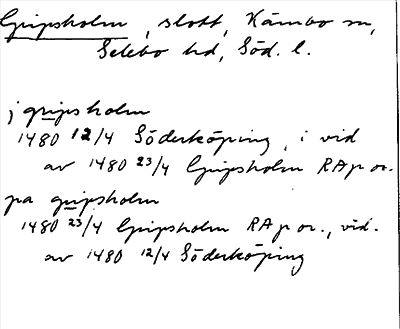 Gripsholm, slott, Kärnbo sn,
Selebo hd, Söd. l.
j gripsholm
1480 12/4 Söderköping, i vid
av 1480 23/4 Gripsholm RAp or.
pa gripsholm
1480 23/4 Gripsholm RAp or., vid.
av 1480 12/4 Söderköping